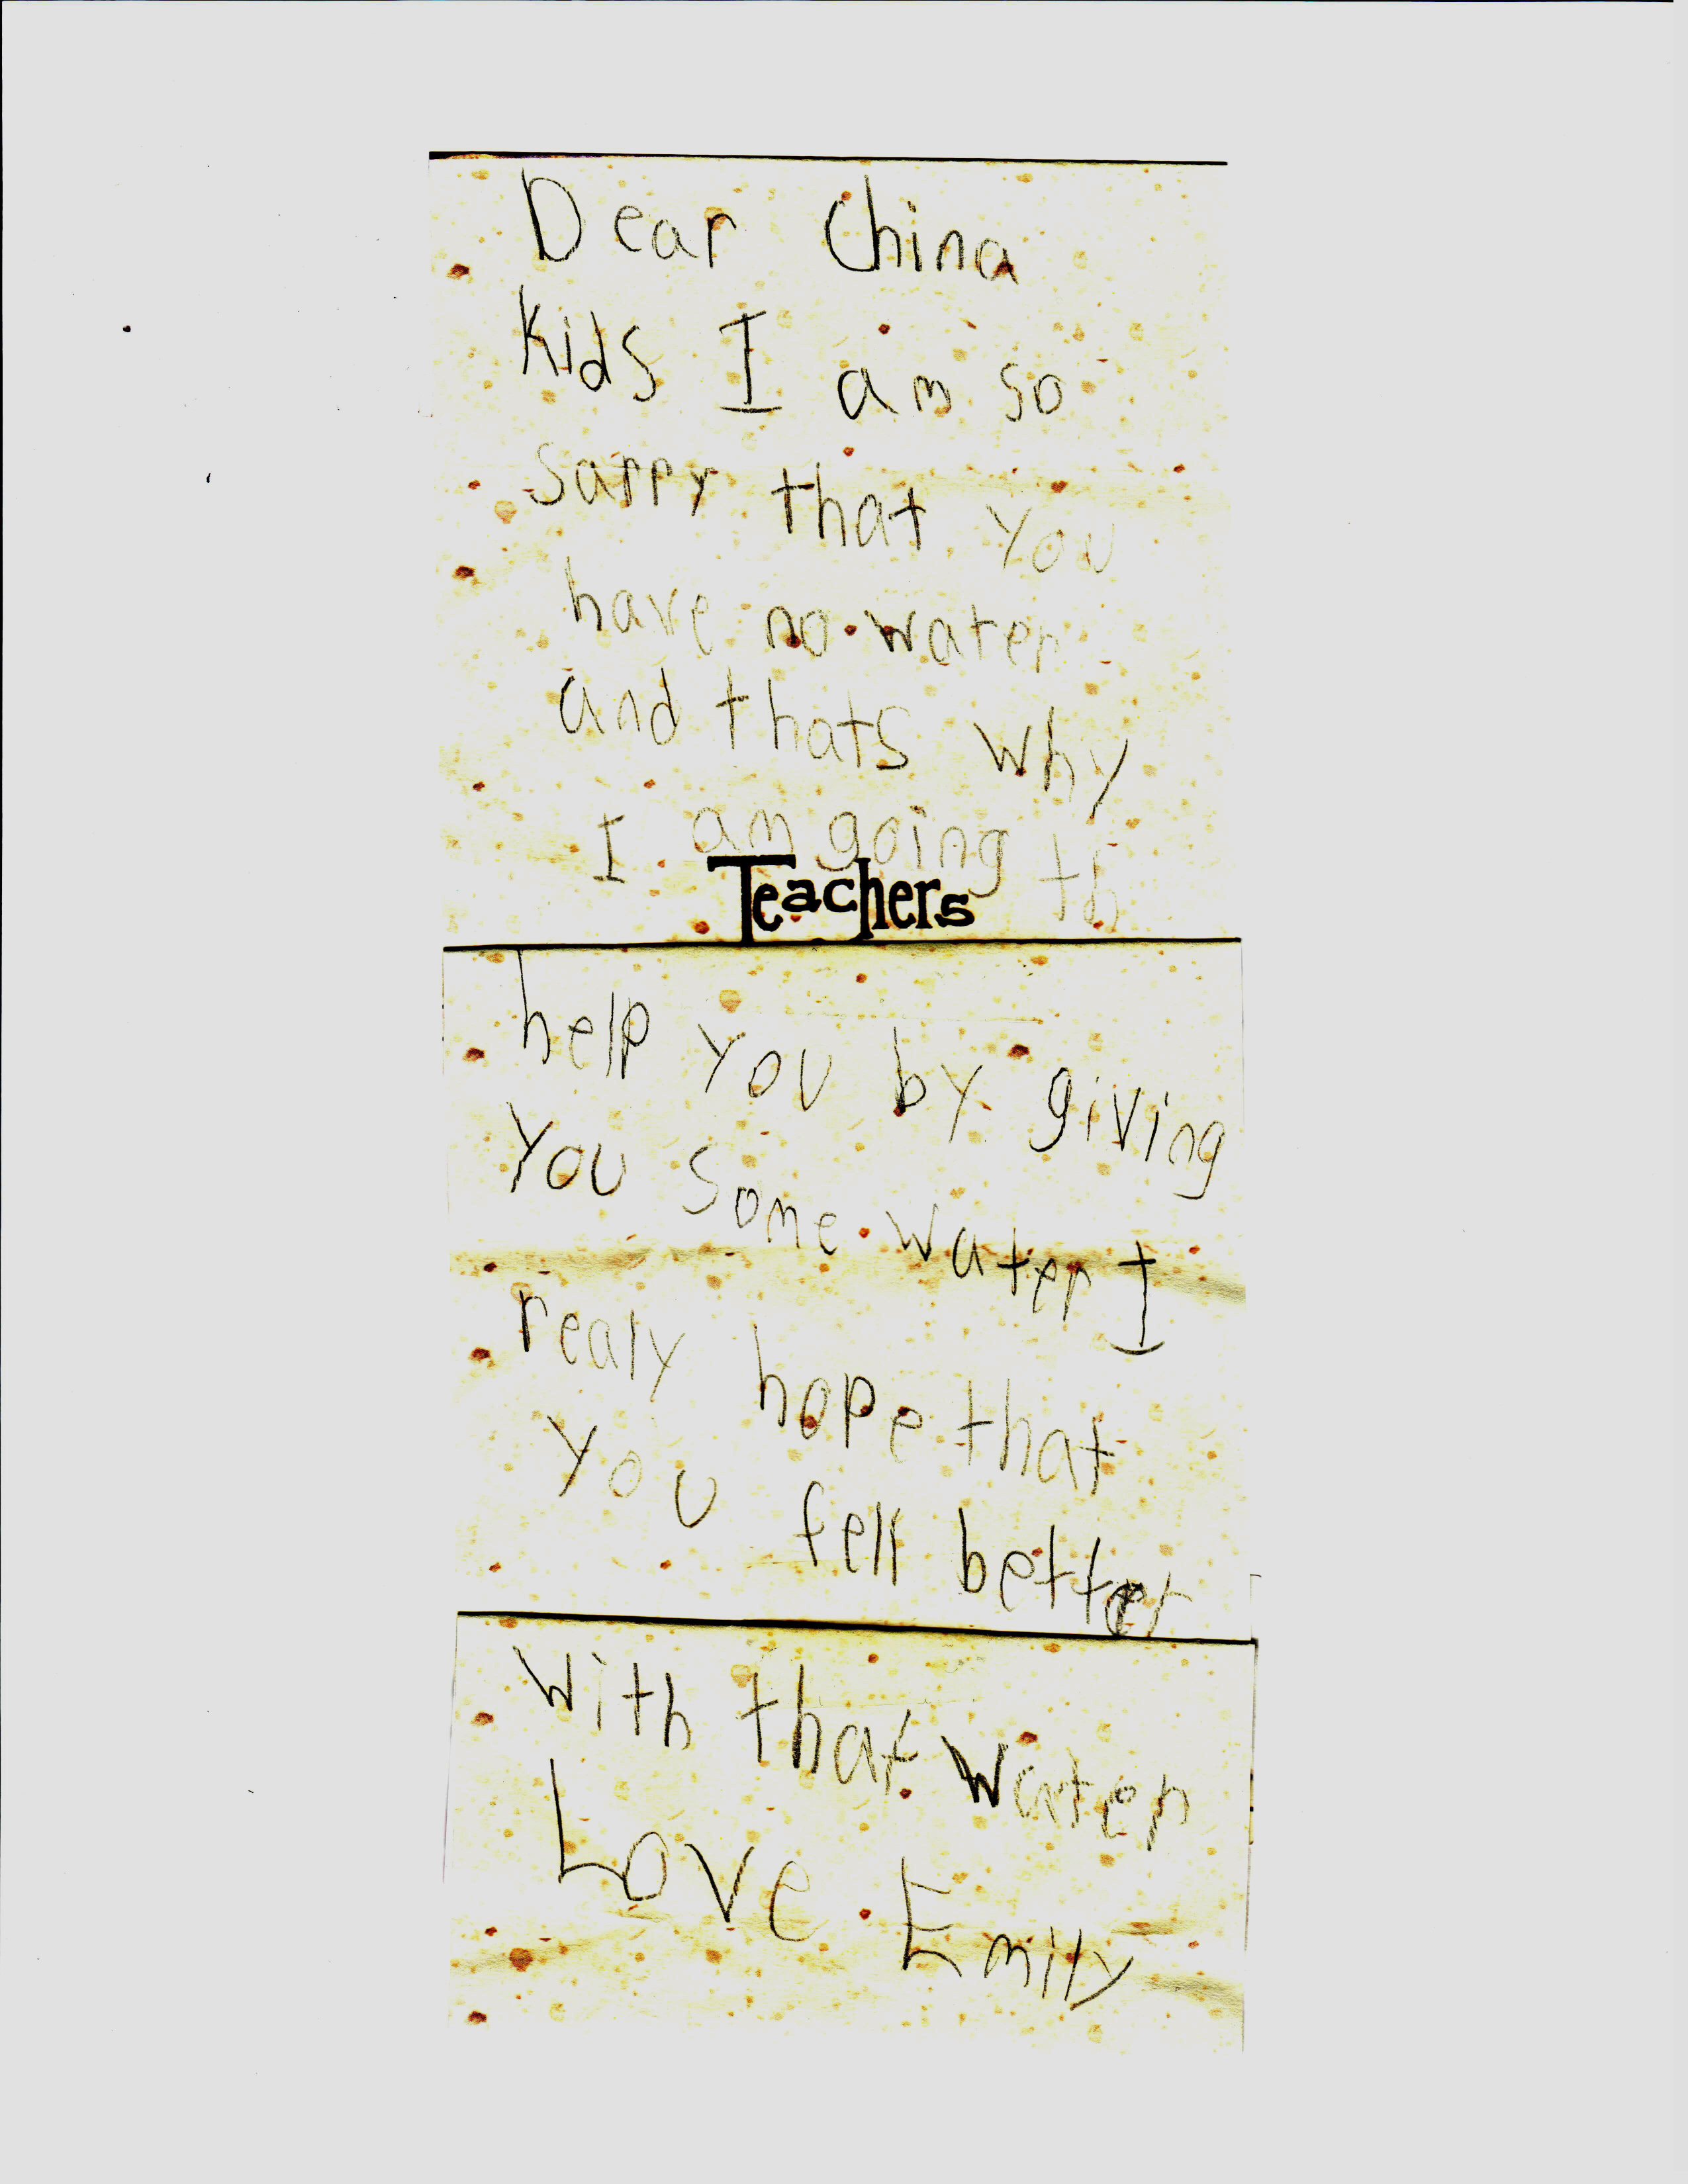 Dear China
Kids I am so
Sarry that you
have no water
and thats why
I am going th
Teachers
help you by giving
you some water I
realy hope that
you fell better
with that water
Love Emily